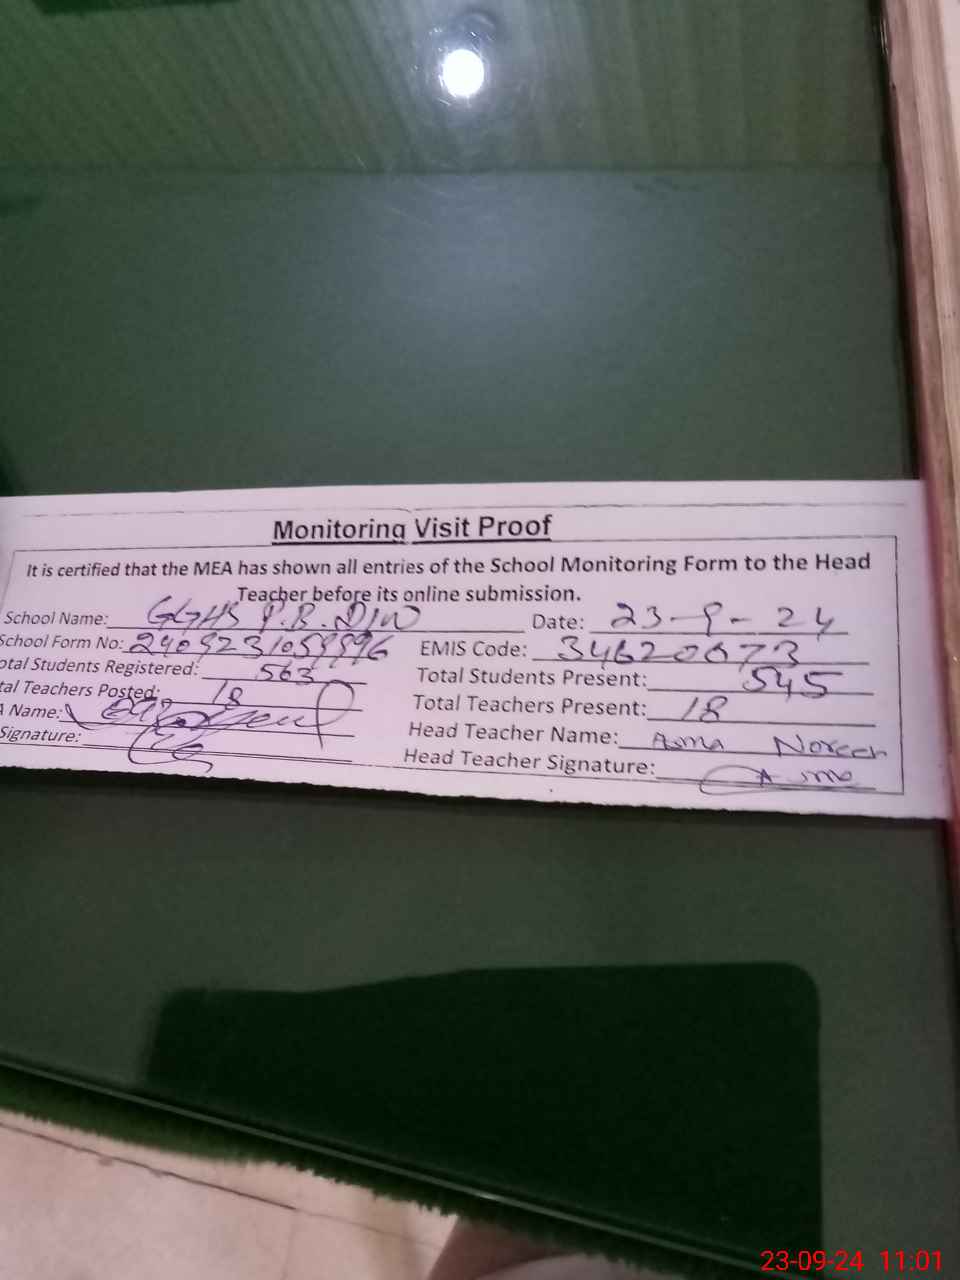 Monitoring Visit Proof
It is certified that the MEA has shown all entries of the School Monitoring Form to the Head
Teacher before its online submission.
School Name: GGHS P.B. DIW Date: 23-9-24
School Form No: EMIS Code: 34620073
otal Students Registered: 563 Total Students Present: 545
tal Teachers Posted: 18 Total Teachers Present: 18
A Name: Head Teacher Name: Asma Noreen
Signature: Head Teacher Signature: Asma
23-09-24 11:01